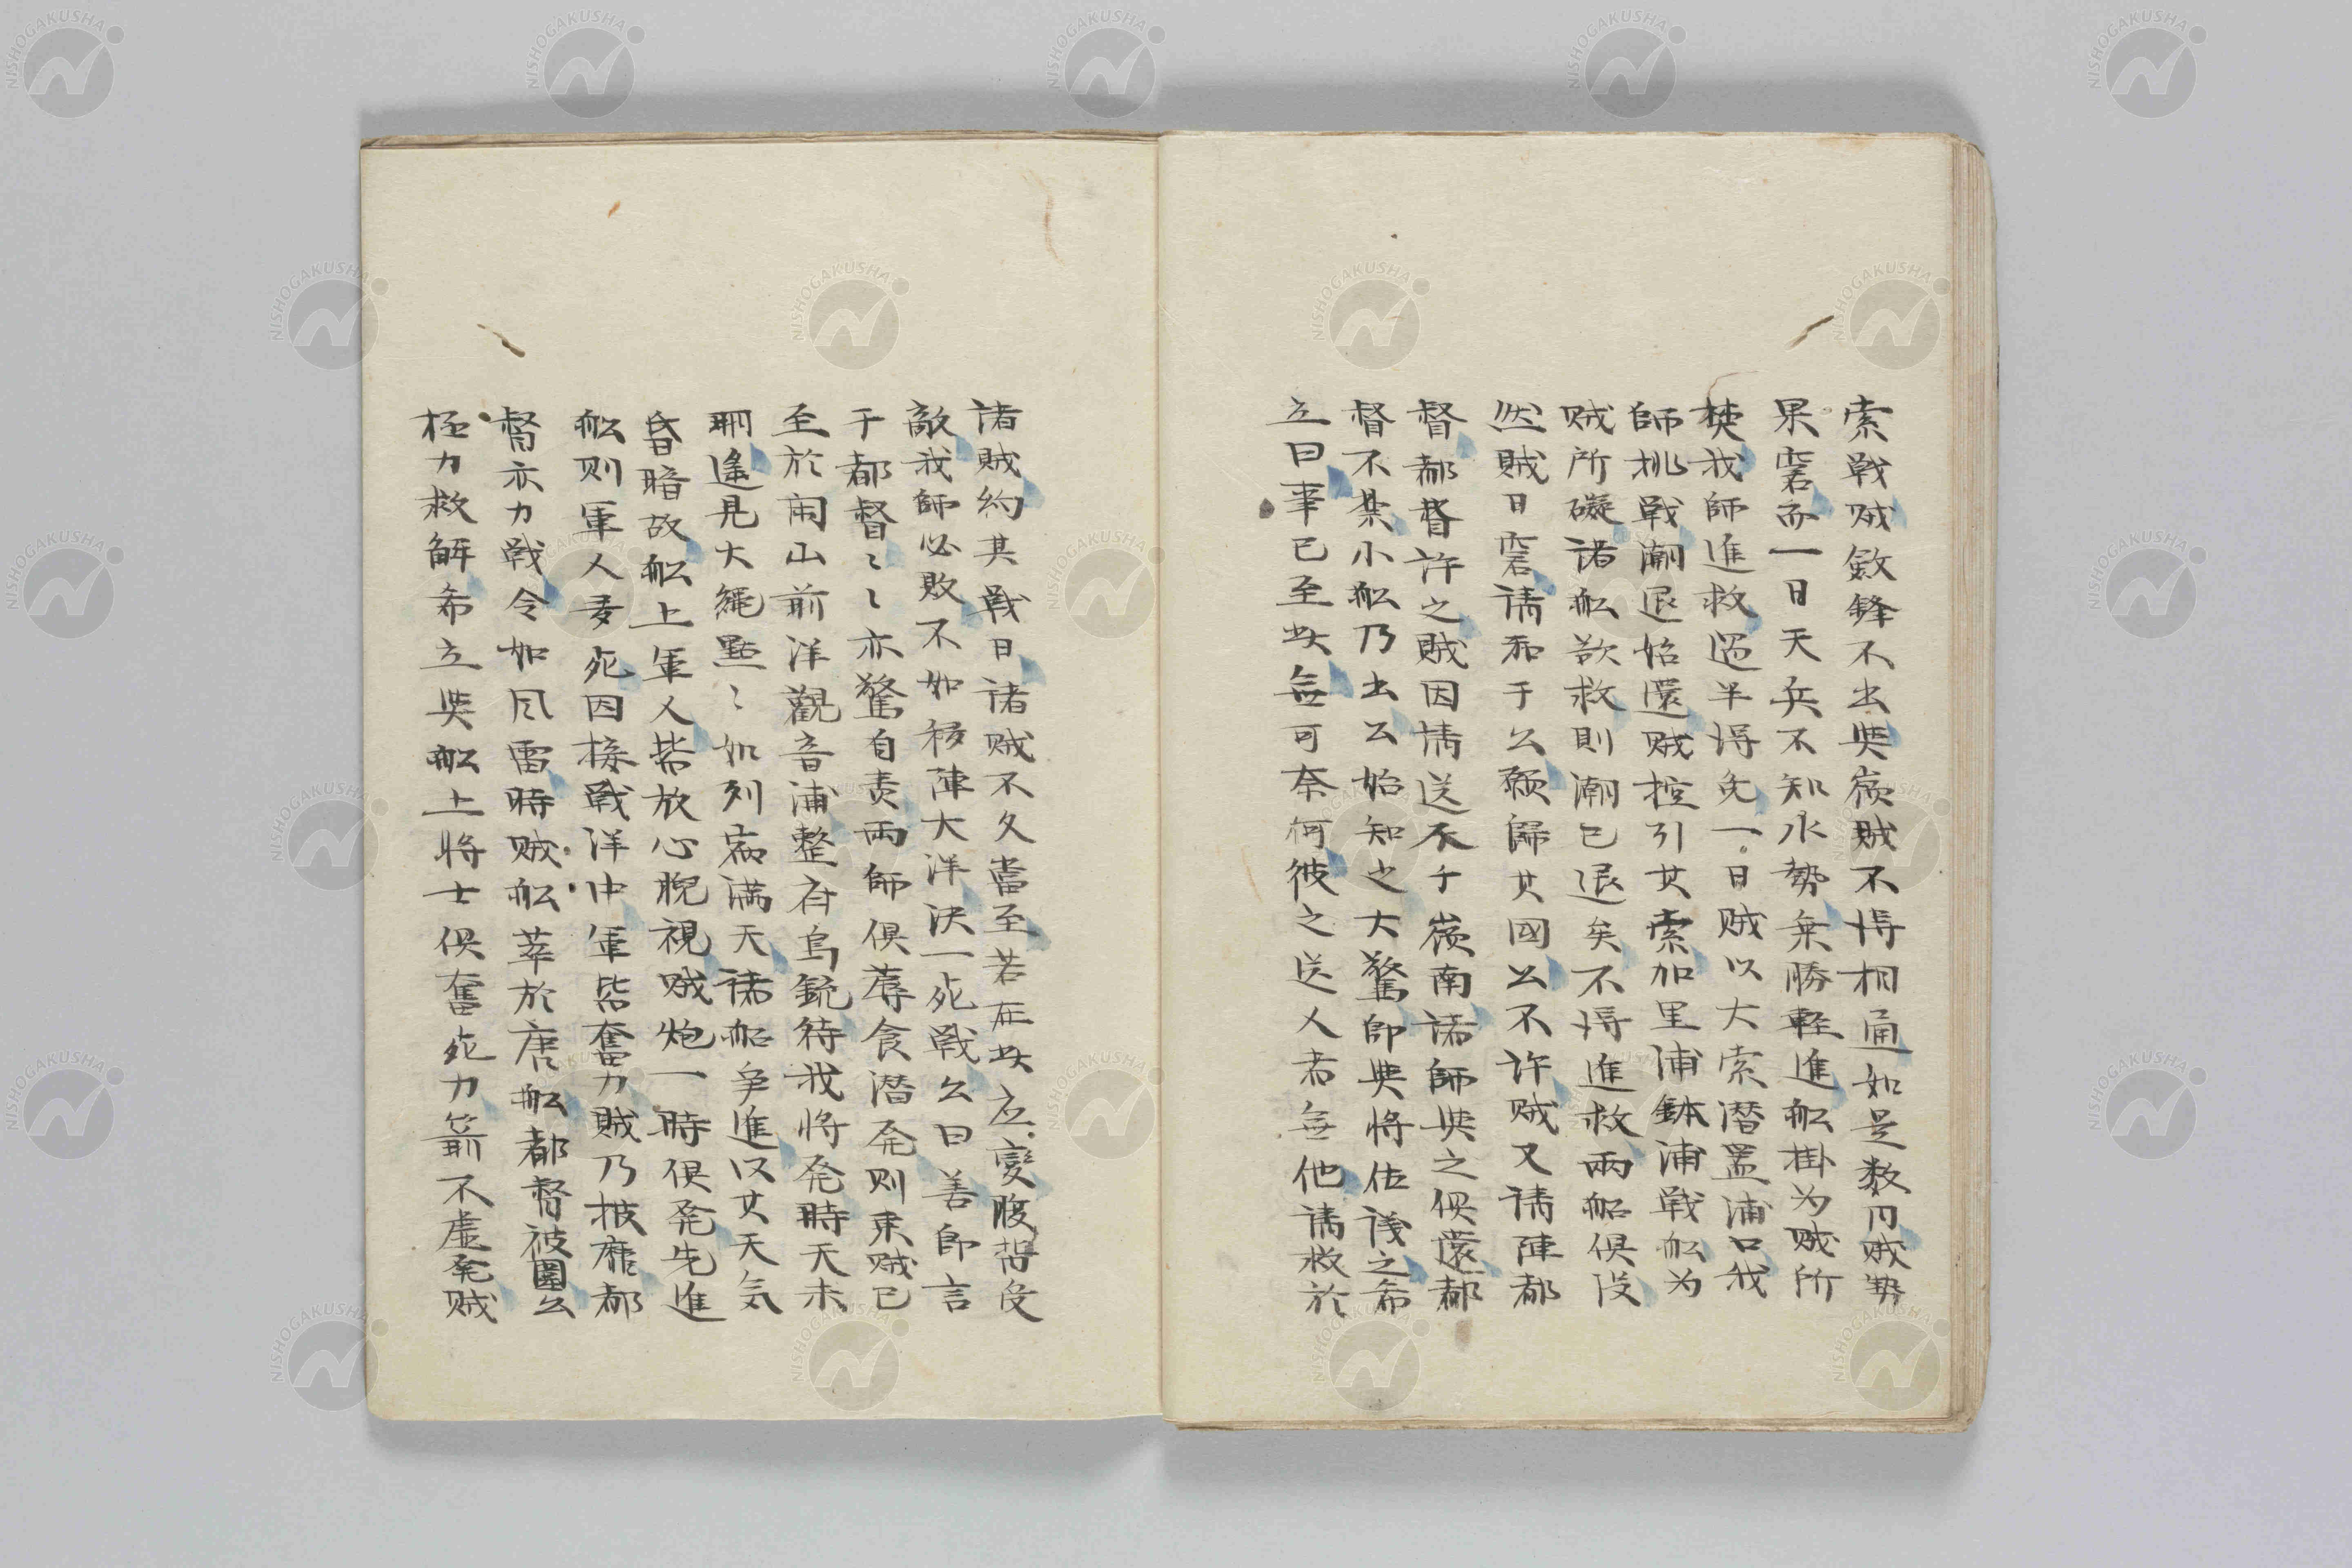 索戰賊斂鋒不出與嶺賊不得相通如是数月賊勢
果窘而一日天兵不知水勢乗勝輕進船掛为賊所
焚我師進救過半得免一日賊以大索潜置浦口我
師挑戰潮退始還賊控引其索加里浦鉢浦戰船为
賊所礙諸船欲救則潮已退矣不得進救兩船俱没
然賊日窘請和于公願歸其國公不許賊又請陣都
督都督許之賊因請送不于嶺南諸師與之俱還都
督不禁小船乃出公始知之大驚即與將佐議之希
立曰事已至此無可奈何彼之送人者無他請救於
諸賊約其戰日諸賊不久當至若在此立變腹背受
敵我師必敗不如移陣大洋決一死戰公曰善即言
于都督〻〻亦驚自责兩師俱蓐食潜発则東賊已
至於南山前洋觀音浦整府鳥銃待我將発時天未
明遙見大繩點〻如列宿滿天諸船争進以其天気
昏暗故船上軍人皆放心睨視賊炮一時俱発先進
船则軍人多死因接戰洋中軍皆奮力賊乃披靡都
督亦力戰令如风雷時賊船萃於唐船都督被圍公
極力救解希立與船上將士俱奮死力箭不虚発賊